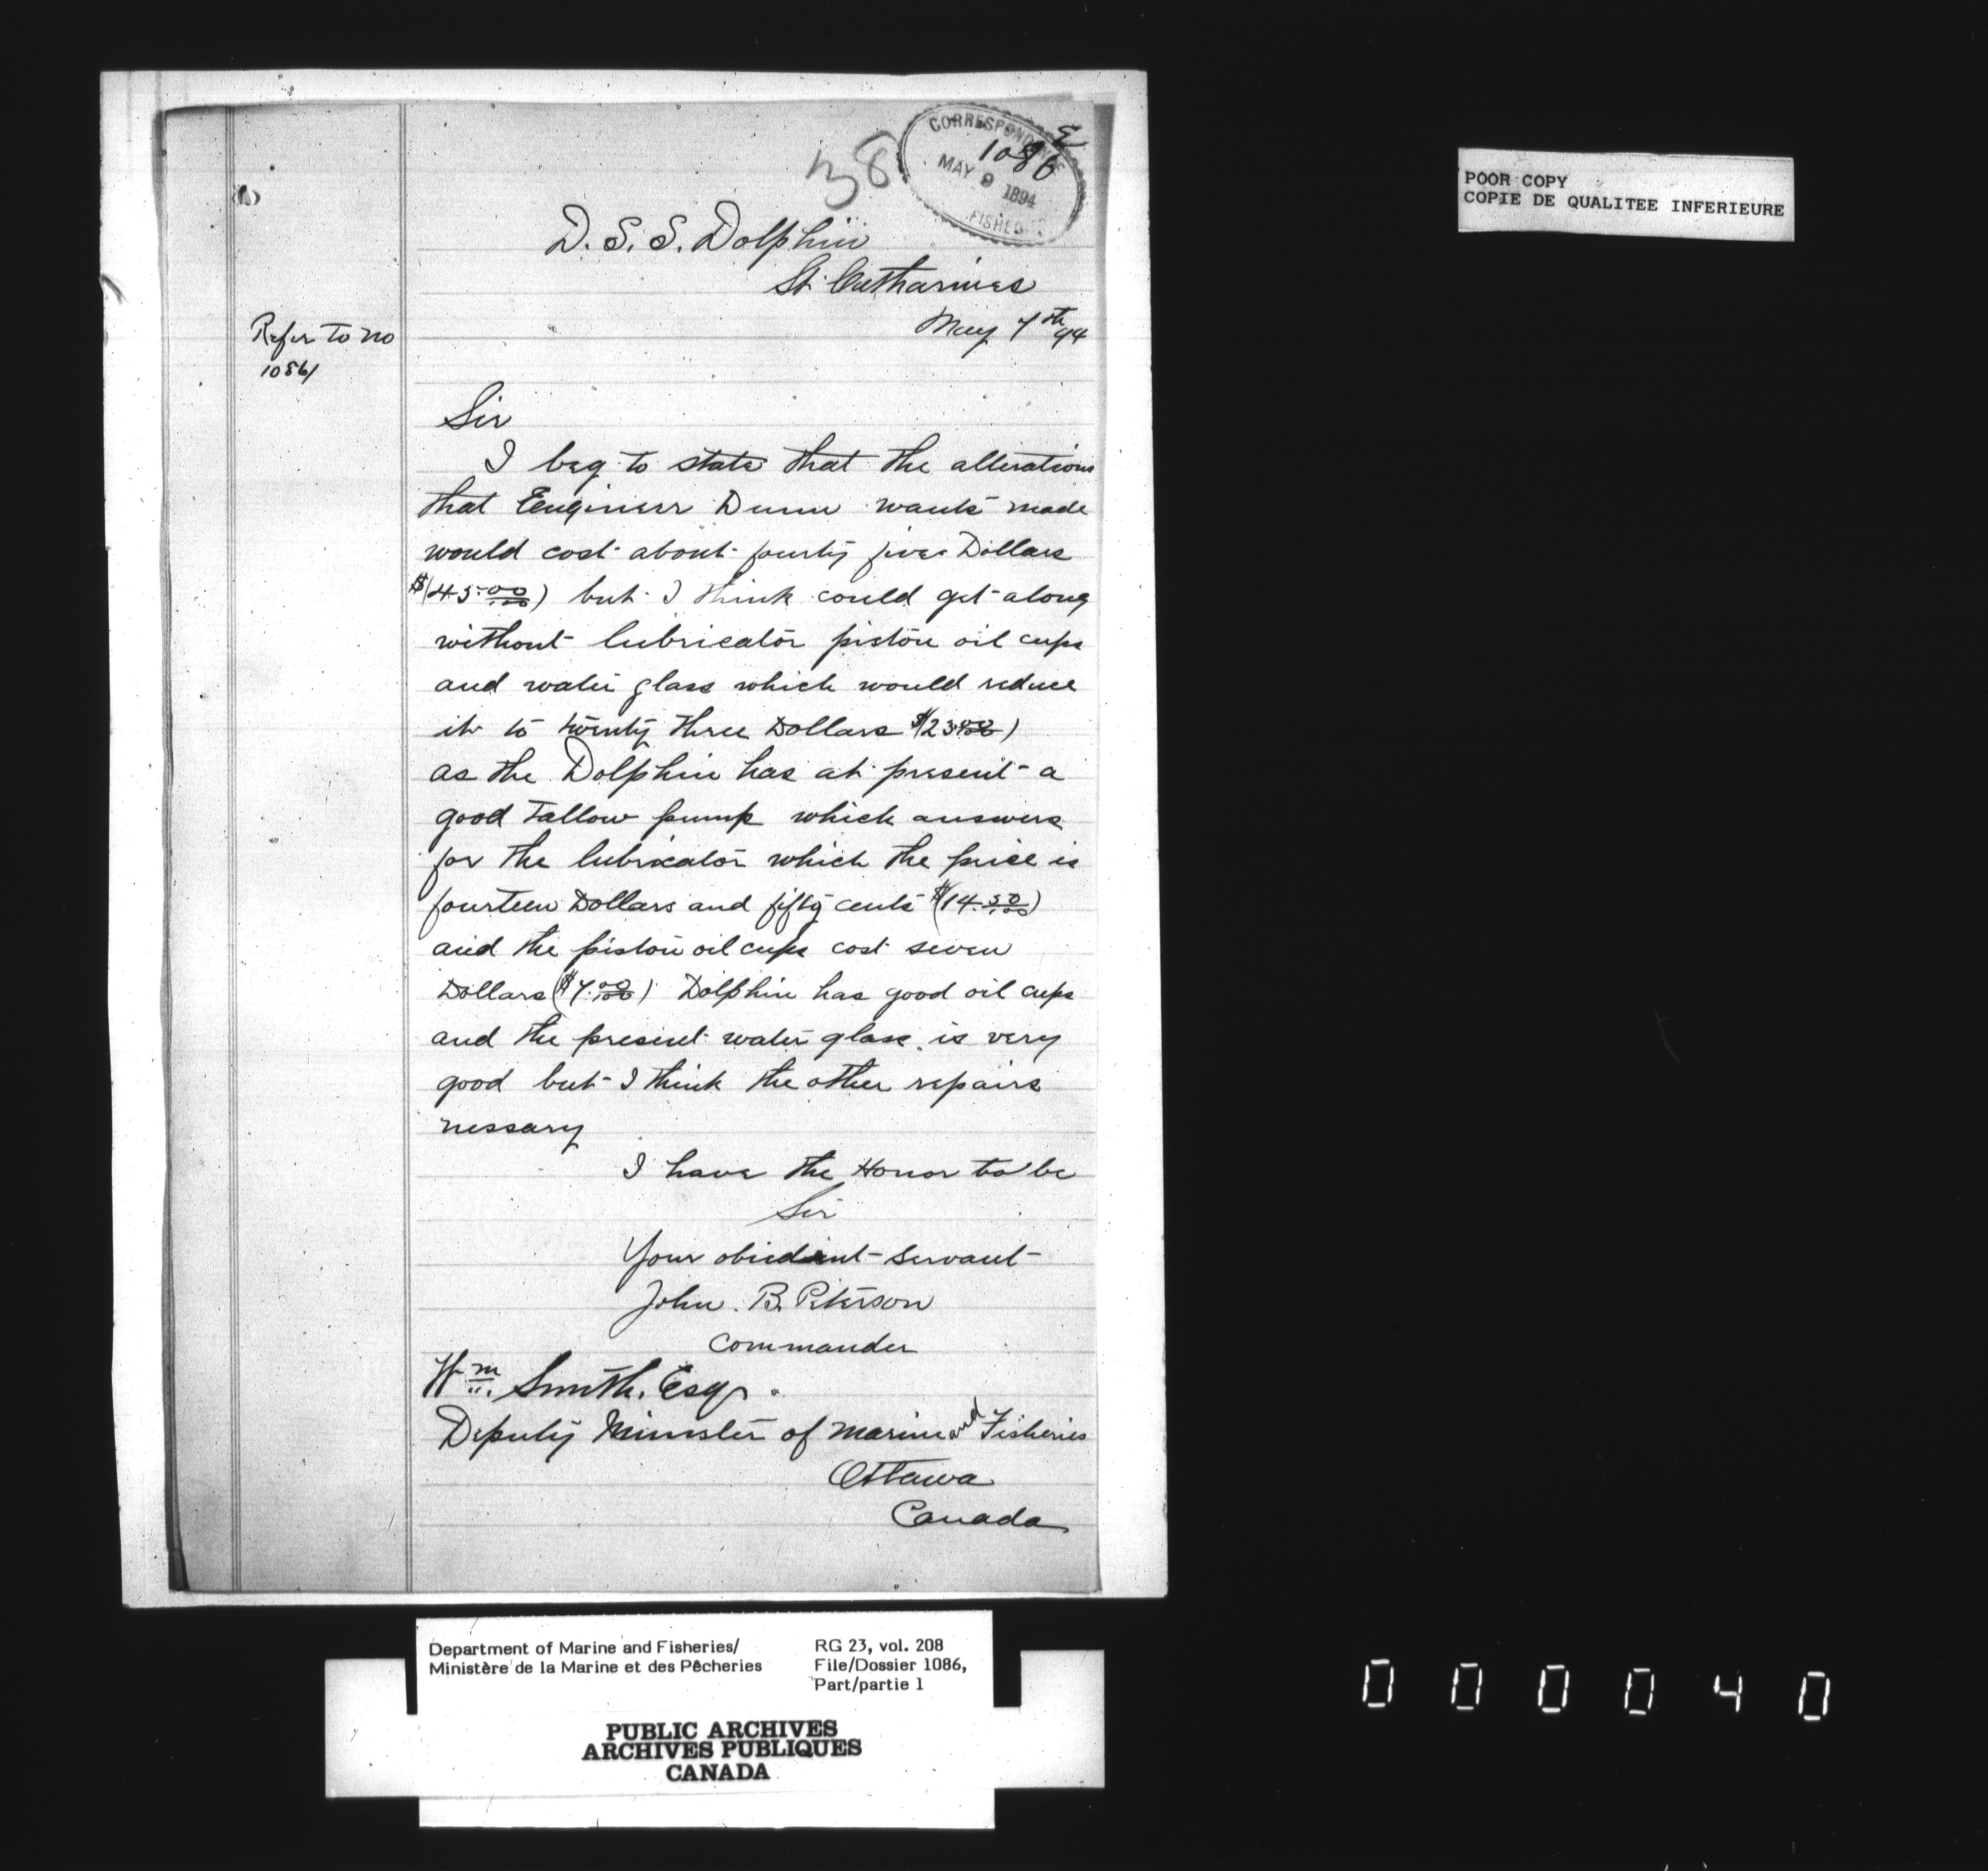 38
CORRESPONDENCE
1086
MAY 9 1894
FISHERIES
D. S. S. Dolphin
St. Catharines
May 7th 94
Refer to no
1086/
Sir
I beg to state that the alterations
that Eengineer Dunn wants made
would cost about fourty five Dollars
$(45 00/100) but I think could get along
without lubricator piston oil cups
and water glass which would reduce
it to twenty three Dollars $(23 00/100)
as the Dolphin has at present a
good Tallow pump which answers
for the lubricator which the price is
fourteen Dollars and fifty cents $(14.50/100)
and the piston oil cups cost seven
Dollars ($7.00/100) Dolphin has good oil cups
and the present water glass is very
good but I think the other repairs
nessary
I have the Honor to be
Sir
Your obiedent servant
John. B. Peterson
Commander
Wm. Smith. Esqr.
Deputy Minister of marine and Fisheries
Ottawa
Canada
POOR COPY
COPIE DE QUALITEE INFERIEURE
Department of Marine and Fisheries/
Ministère de la Marine et des Pêcheries
RG 23, vol. 208
File/Dossier 1086,
Part/partie 1
PUBLIC ARCHIVES
ARCHIVES PUBLIQUES
CANADA
000040